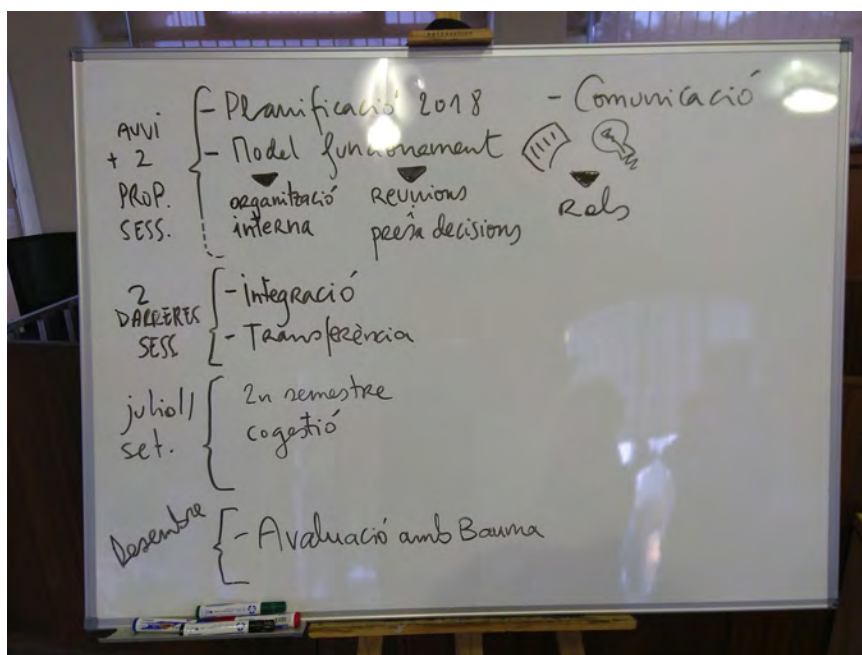 AVUI
+ 2
PROP.
SESS.
- Planificació 2018 - Comunicació
- Model funcionament
organització
interna
Reunions
presa decisions
Rols
2
DARRERES
SESS
- integració
- Transferència
juliol/
set.
2n semestre
cogestió
Desembre
- Avaluació amb Bauma